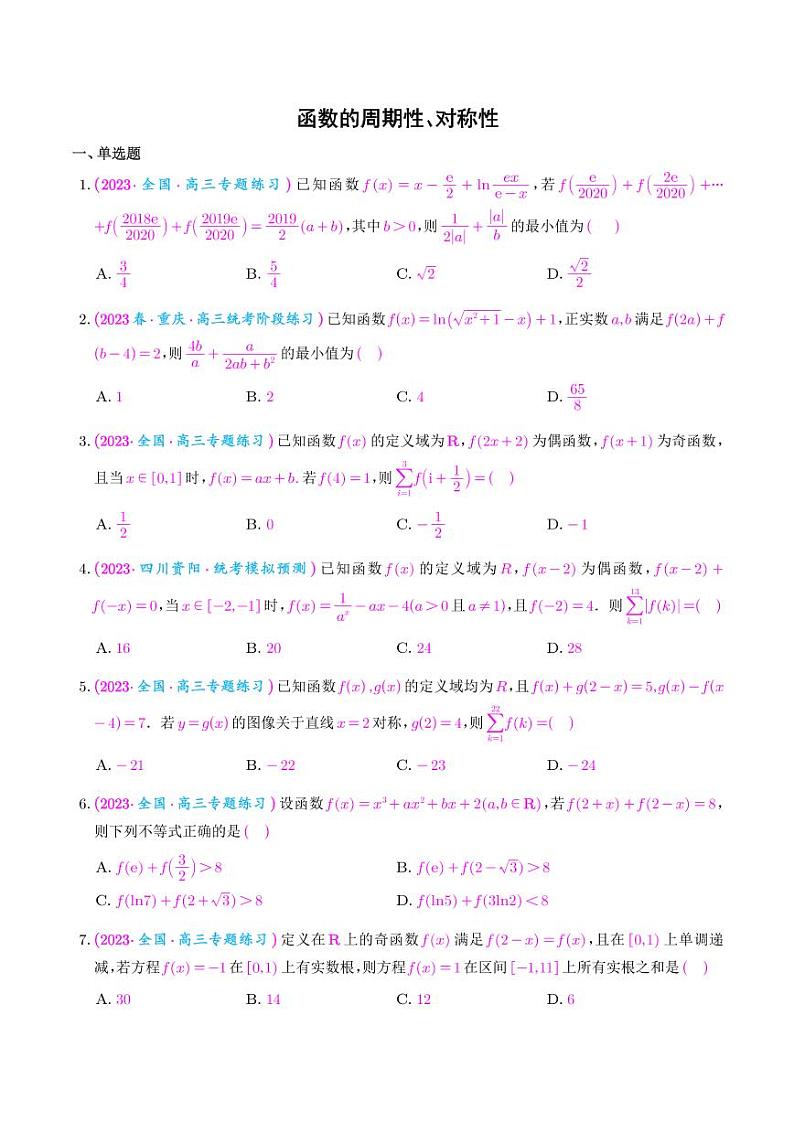 函数的周期性、对称性
一、单选题
1. (2023·全国·高三专题练习) 已知函数 f(x) = x - e/2 + ln ex/(e-x) ，若 f(e/2020) + f(2e/2020) + ⋯
+ f(2018e/2020) + f(2019e/2020) = 2019/2 (a+b)，其中 b > 0，则 1/(2|a|) + |a|/b 的最小值为（ ）
A. 3/4 B. 5/4 C. √2 D. √2/2
2. (2023春·重庆·高三统考阶段练习) 已知函数 f(x) = ln(√(x²+1) - x) + 1，正实数 a,b 满足 f(2a) + f
(b-4) = 2，则 4b/a + a/(2ab+b²) 的最小值为（ ）
A. 1 B. 2 C. 4 D. 65/8
3. (2023·全国·高三专题练习) 已知函数 f(x) 的定义域为 R，f(2x+2) 为偶函数，f(x+1) 为奇函数，
且当 x∈[0,1] 时，f(x) = ax+b. 若 f(4) = 1，则 ∑_{i=1}^{3} f(i + 1/2) = （ ）
A. 1/2 B. 0 C. -1/2 D. -1
4. (2023·四川资阳·统考模拟预测) 已知函数 f(x) 的定义域为 R，f(x-2) 为偶函数，f(x-2) +
f(-x) = 0，当 x∈[-2,-1] 时，f(x) = 1/aˣ - ax - 4(a > 0 且 a ≠ 1)，且 f(-2) = 4．则 ∑_{k=1}^{13} |f(k)| = （ ）
A. 16 B. 20 C. 24 D. 28
5. (2023·全国·高三专题练习) 已知函数 f(x),g(x) 的定义域均为 R，且 f(x) + g(2-x) = 5,g(x) - f(x
-4) = 7．若 y = g(x) 的图像关于直线 x = 2 对称，g(2) = 4，则 ∑_{k=1}^{22} f(k) = （ ）
A. -21 B. -22 C. -23 D. -24
6. (2023·全国·高三专题练习) 设函数 f(x) = x³ + ax² + bx + 2(a,b∈R)，若 f(2+x) + f(2-x) = 8，
则下列不等式正确的是（ ）
A. f(e) + f(3/2) > 8 B. f(e) + f(2-√3) > 8
C. f(ln7) + f(2+√3) > 8 D. f(ln5) + f(3ln2) < 8
7. (2023·全国·高三专题练习) 定义在 R 上的奇函数 f(x) 满足 f(2-x) = f(x)，且在 [0,1) 上单调递
减，若方程 f(x) = -1 在 [0,1) 上有实数根，则方程 f(x) = 1 在区间 [-1,11] 上所有实根之和是（ ）
A. 30 B. 14 C. 12 D. 6